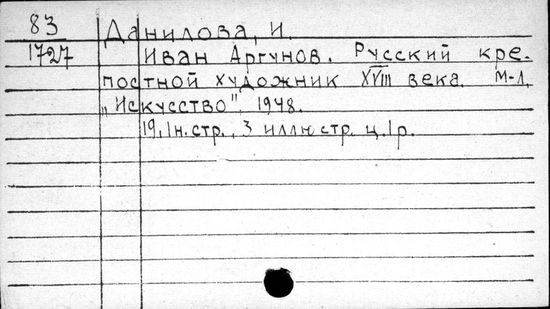 83 Данилова, И.
1727 Иван Аргунов. Русский кре-
постной художник XVIII века. М-Л.
„Искусство", 1948.
19, 1н.стр., 3 иллюстр. ц.1р.